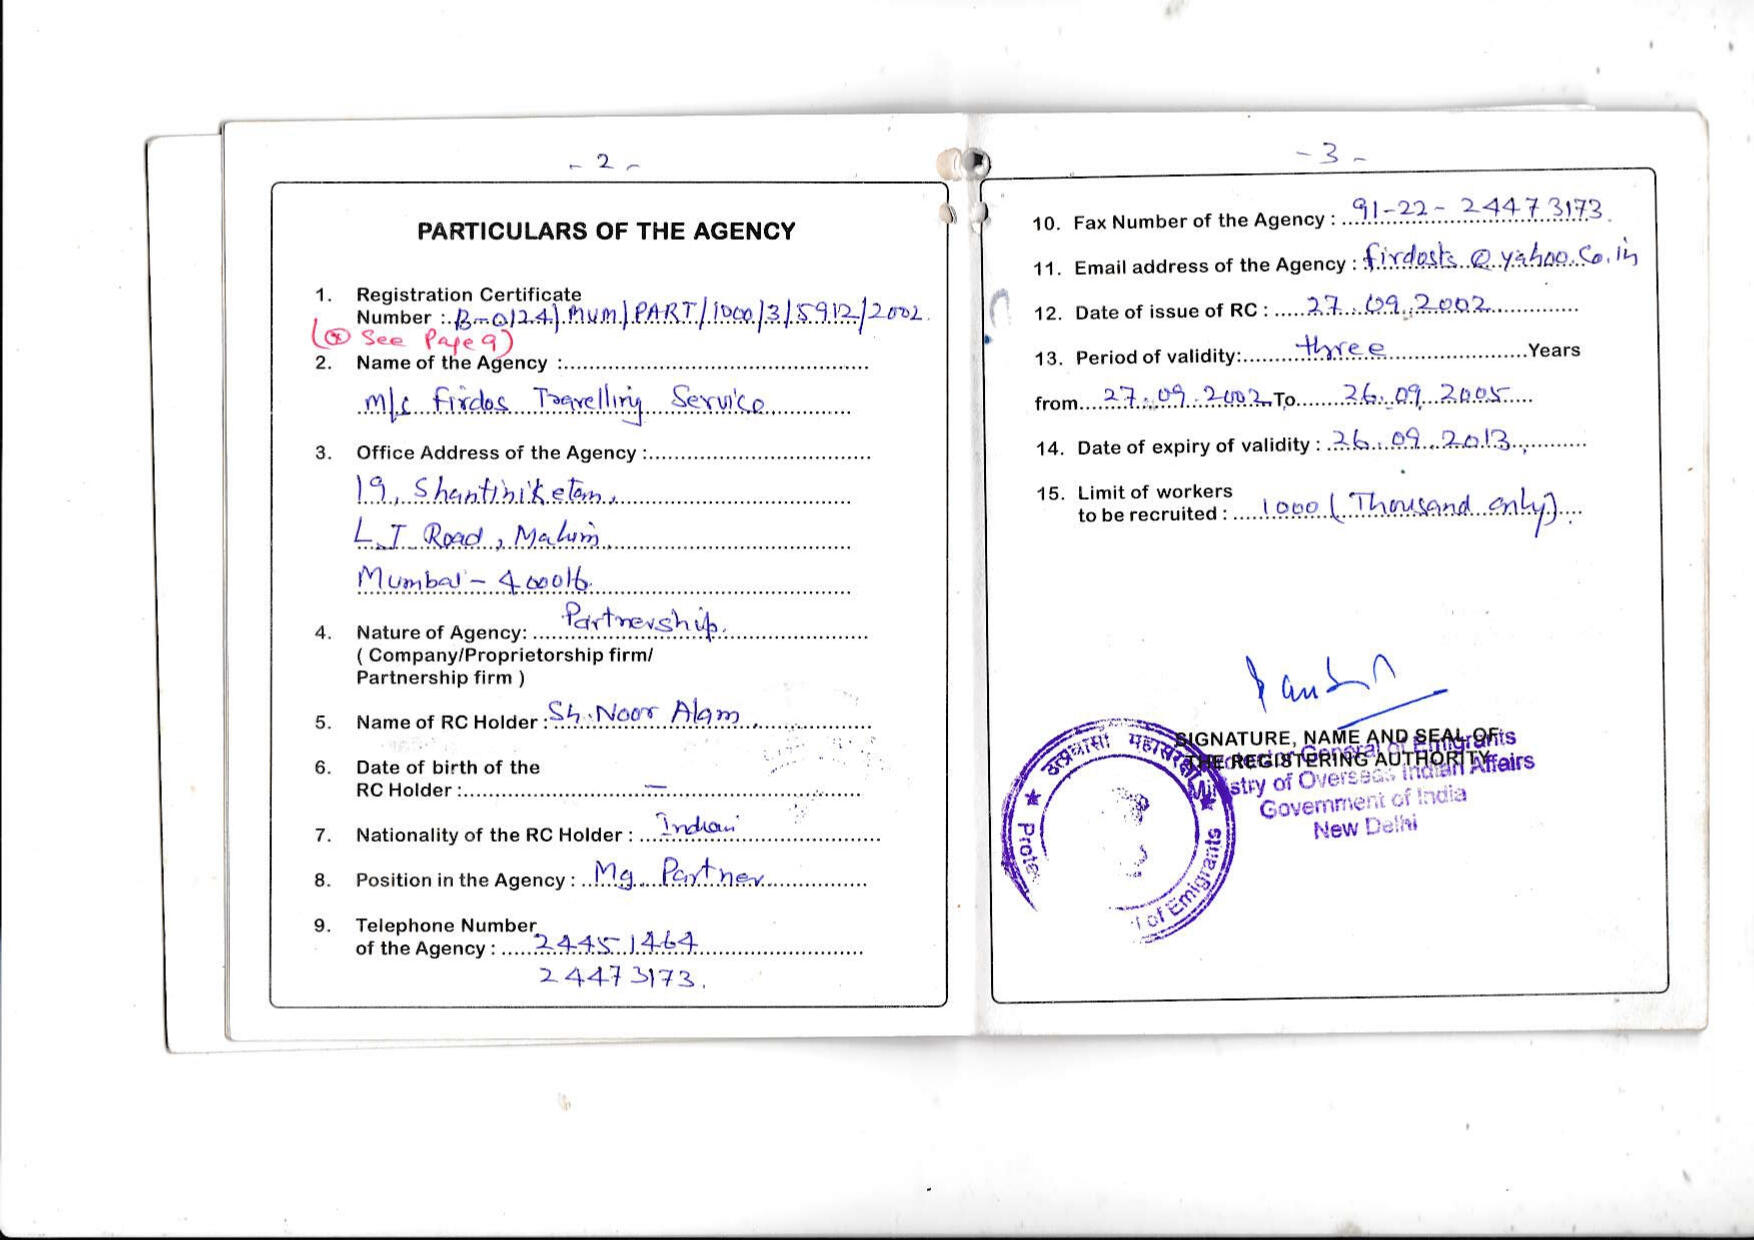 - 2 -
PARTICULARS OF THE AGENCY
1. Registration Certificate
Number : B-0124/MUM/PART/1000/3/5912/2002.
(⊗ See Page 9)
2. Name of the Agency :
M/s Firdos Travelling Service
3. Office Address of the Agency :
19, Shantiniketan,
L.J Road, Mahim,
Mumbai - 400016.
4. Nature of Agency: Partnership.
( Company/Proprietorship firm/
Partnership firm )
5. Name of RC Holder : Sh. Noor Alam.
6. Date of birth of the
RC Holder : —
7. Nationality of the RC Holder : Indian
8. Position in the Agency : Mg. Partner
9. Telephone Number
of the Agency : 24451464
24473173.
- 3 -
10. Fax Number of the Agency : 91-22-24473173.
11. Email address of the Agency : firdosts@yahoo.co.in
12. Date of issue of RC : 27.09.2002
13. Period of validity: three Years
from 27.09.2002 To 26.09.2005
14. Date of expiry of validity : 26.09.2013.
15. Limit of workers
to be recruited : 1000 (Thousand only).
SIGNATURE, NAME AND SEAL OF
THE REGISTERING AUTHORITY
General of Emigrants
Ministry of Overseas Indian Affairs
Government of India
New Delhi
of Emigrants